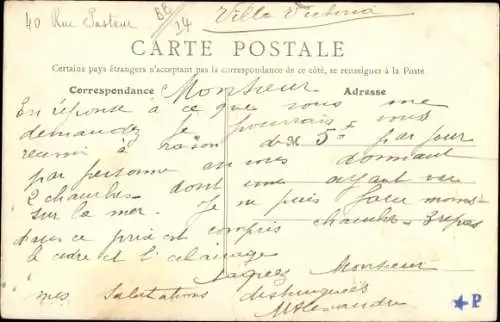 40 Rue Pasteur
Villa Victoria
CARTE POSTALE
Certains pays étrangers n'acceptant pas la correspondance de ce côté, se renseigner à la Poste
Correspondance
Adresse
Monsieur
En réponse à ce que vous me
demandez je pourrais vous
à raison de 5 F par jour
par personne en vous donnant
2 chambres dont une ayant vue
sur la mer. Je ne puis faire moins
dans ce prix est compris chambre 3 repas
le cidre et l'eclairage
Agréez Monsieur
mes salutations distinguées
M Alexandre
P